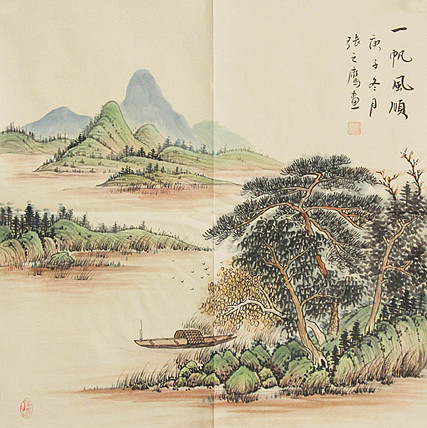 一帆風順
庚子冬月
張之鷹畫